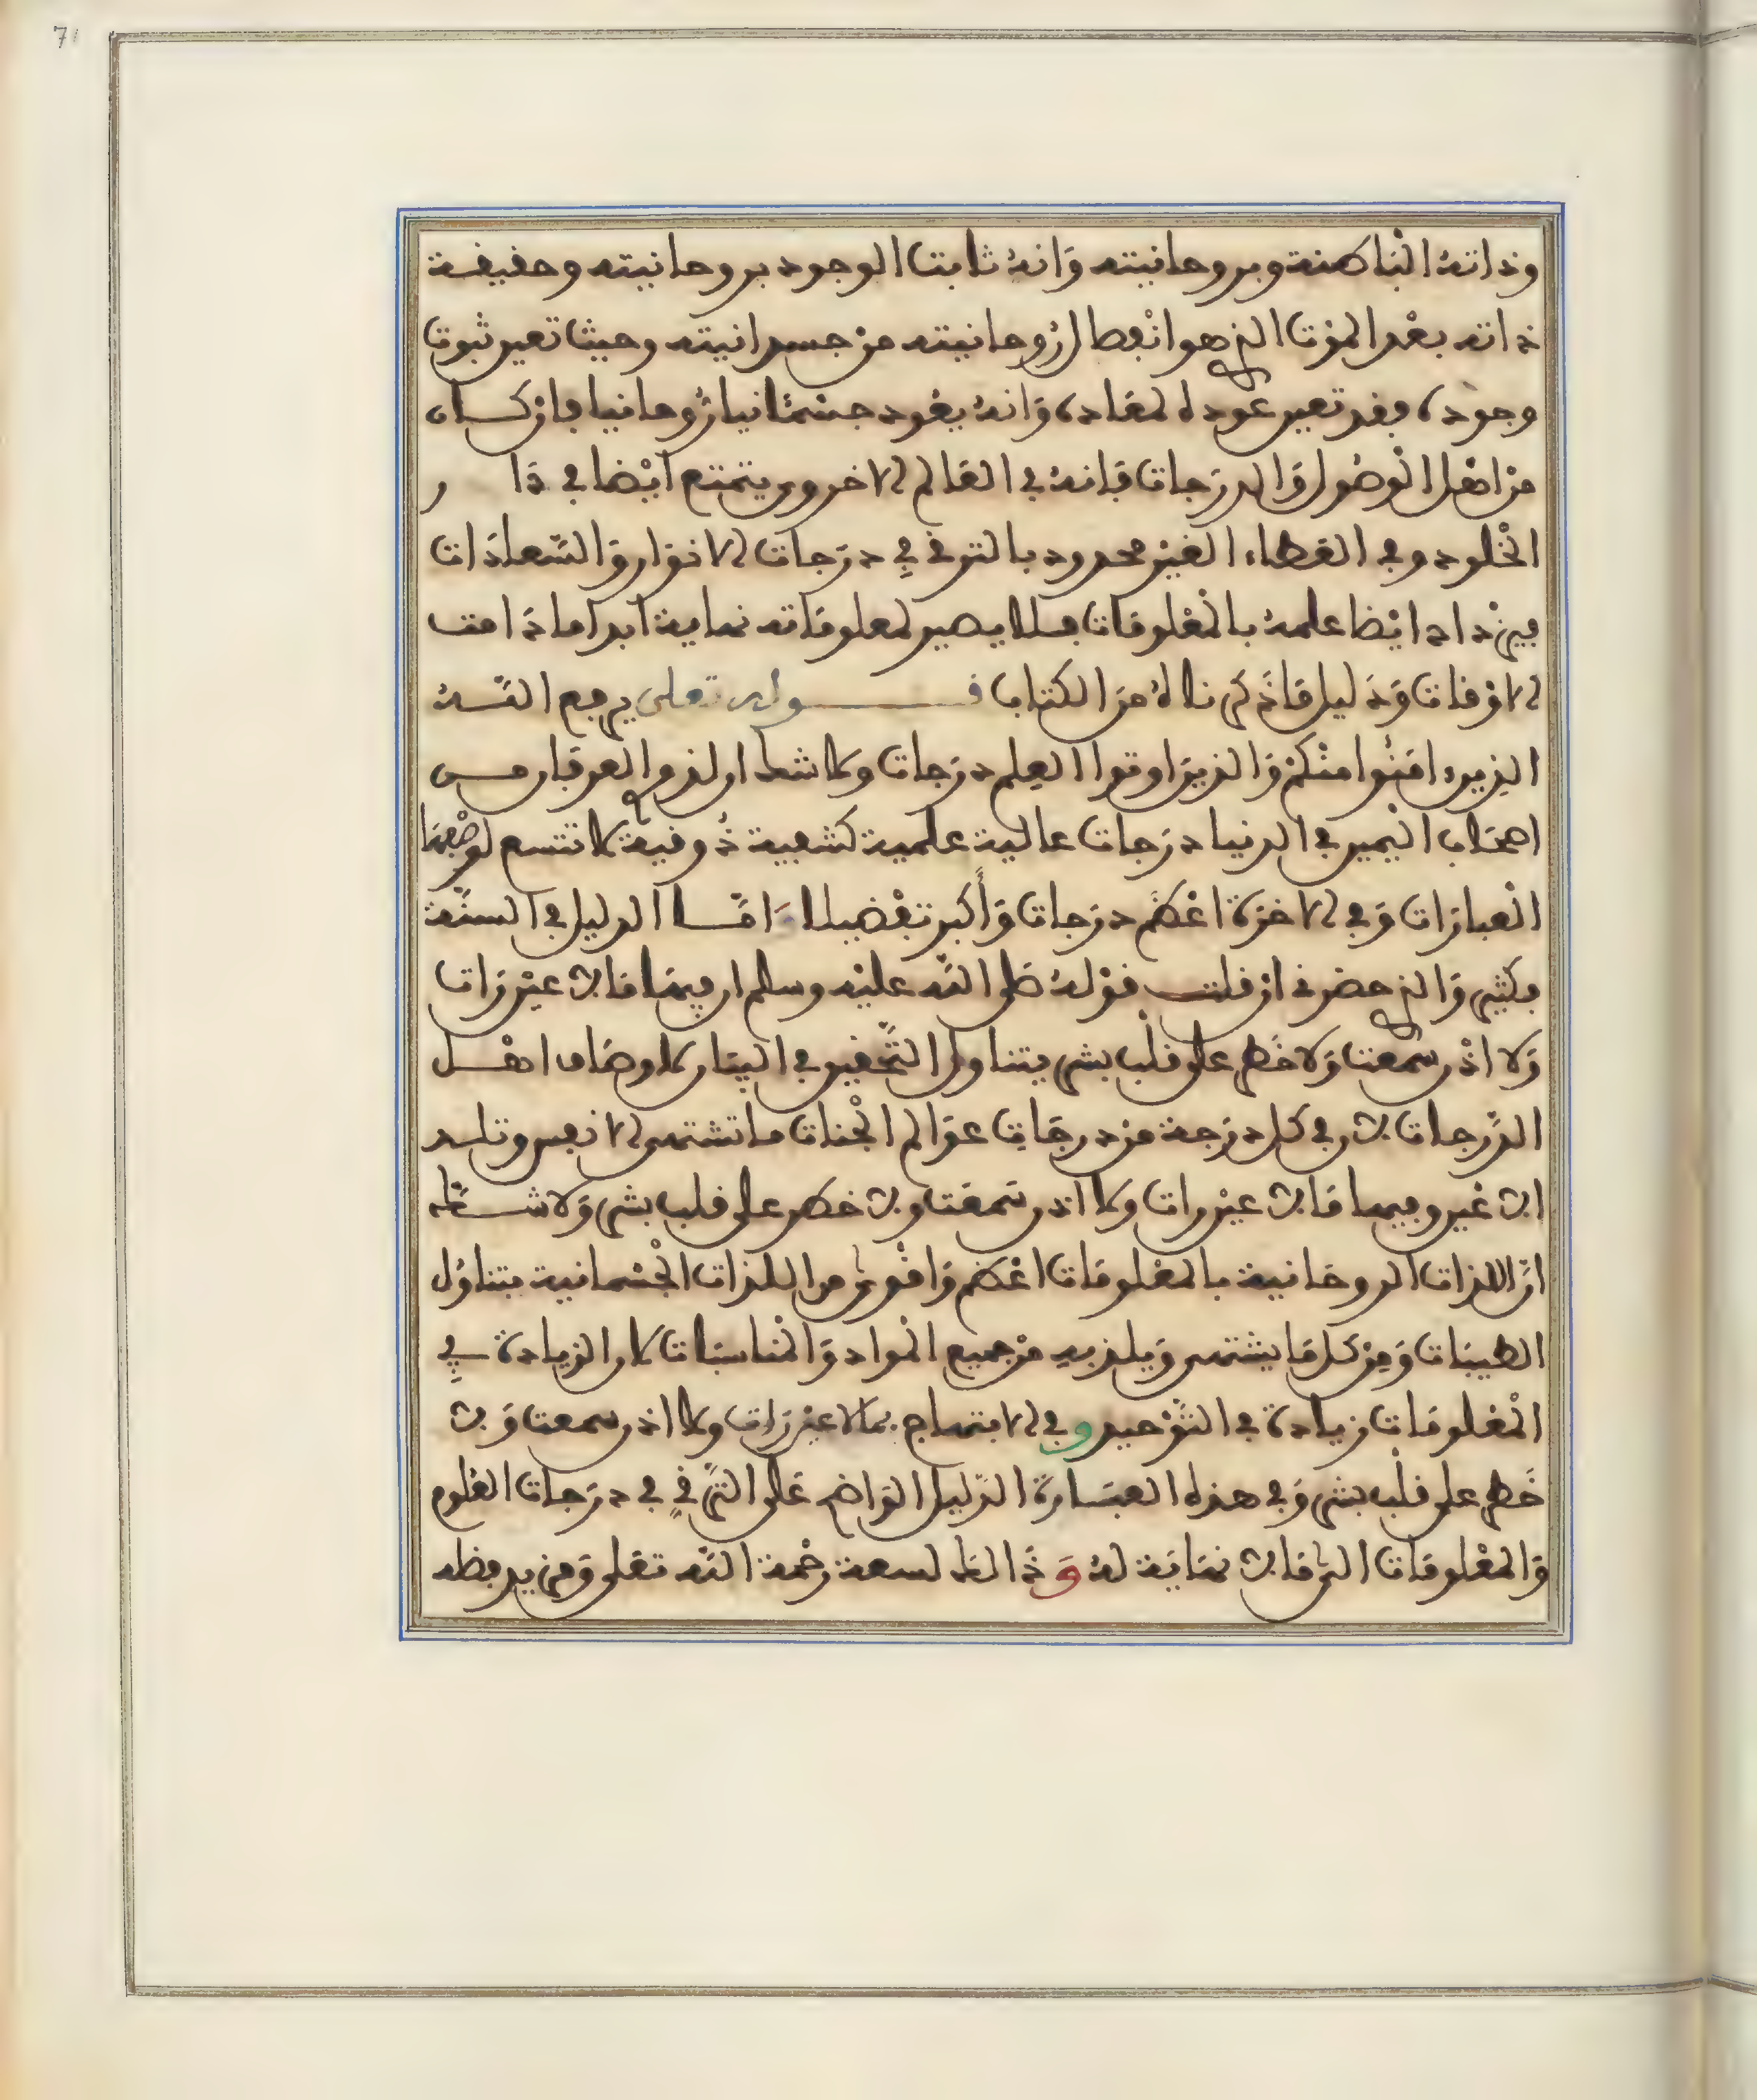 71
وذاته الباطنة وبروحانيته وانه ثابت الوجود بروحانيته وحقيقة
ذاته بعد الموت الذي هو انفصال روحانيته من جسدانيته وحيث تعين ثبوت
وجوده فقد تعين عوده لمعاده وانه يعود جسمانيا روحانيا فان كان
من اهل الوصول والدرجات فانه في العالم الاخروي يتمتع ايضا في دار
الخلود وفي العطاء الغير محدود بالترقي في درجات الانوار والسعادات
فيزداد ايضا علمه بالمعلومات فلا يصير لمعلوماته نهاية ابدا ما دامت
الاوقات ودليل ما ذكرناه من الكتاب قوله تعلى يرفع الله
الذين امنوا منكم والذين اوتوا العلم درجات ولا شك ان لذوي العرفان من
اصحاب اليمين في الدنيا درجات عالية علمية كشفية ذوقية لا تتسع لوصفها
العبارات وفي الاخرة اعظم درجات وأكبر تفضيلا واما الدليل في السنة
فكثير والذي حضرني ان قلت قوله صلى الله عليه وسلم ان فيها ما لا عين رات
ولا اذن سمعت ولا خطر على قلب بشر يتناول التحقيق في البيان لاوصاف اهل
الدرجات لان في كل درجة من درجات عوالم الجنات ما تشتهي الانفس وتلذ
الاعين وفيها ما لا عين رات ولا اذن سمعت ولا خطر على قلب بشر ولا شك
ان اللذات الروحانية بالمعلومات اعظم واقوى من اللذات الجسمانية بتناول
الطيبات ومن كل ما يشتهى ويلذ به من جميع المواد والمناسبات لان الزيادة في
المعلومات زيادة في التوحيد وفي الابتهاج بما لا عين رات ولا اذن سمعت ولا
خطر على قلب بشر وفي هذه العبارة الدليل الواضح على الترقي في درجات العلوم
والمعلومات التي ما لا نهاية له وذالك لسعة رحمة الله تعلى ومزيد فضله